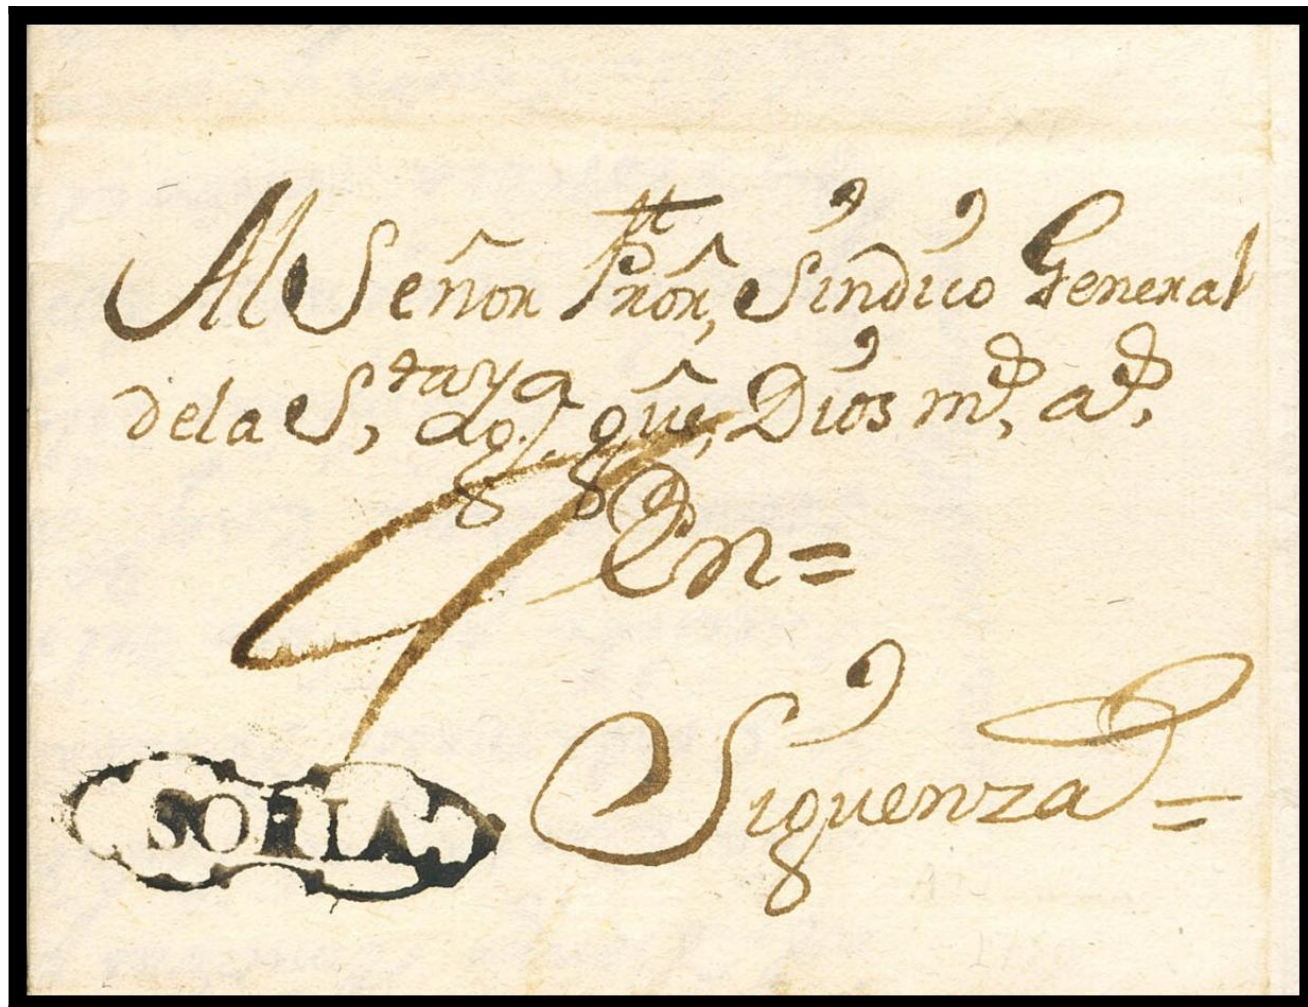 Al Señor Prõr, Síndico General
dela S,
gũe, Dios m.s a.s
4
En=
Siguenza=
SORIA